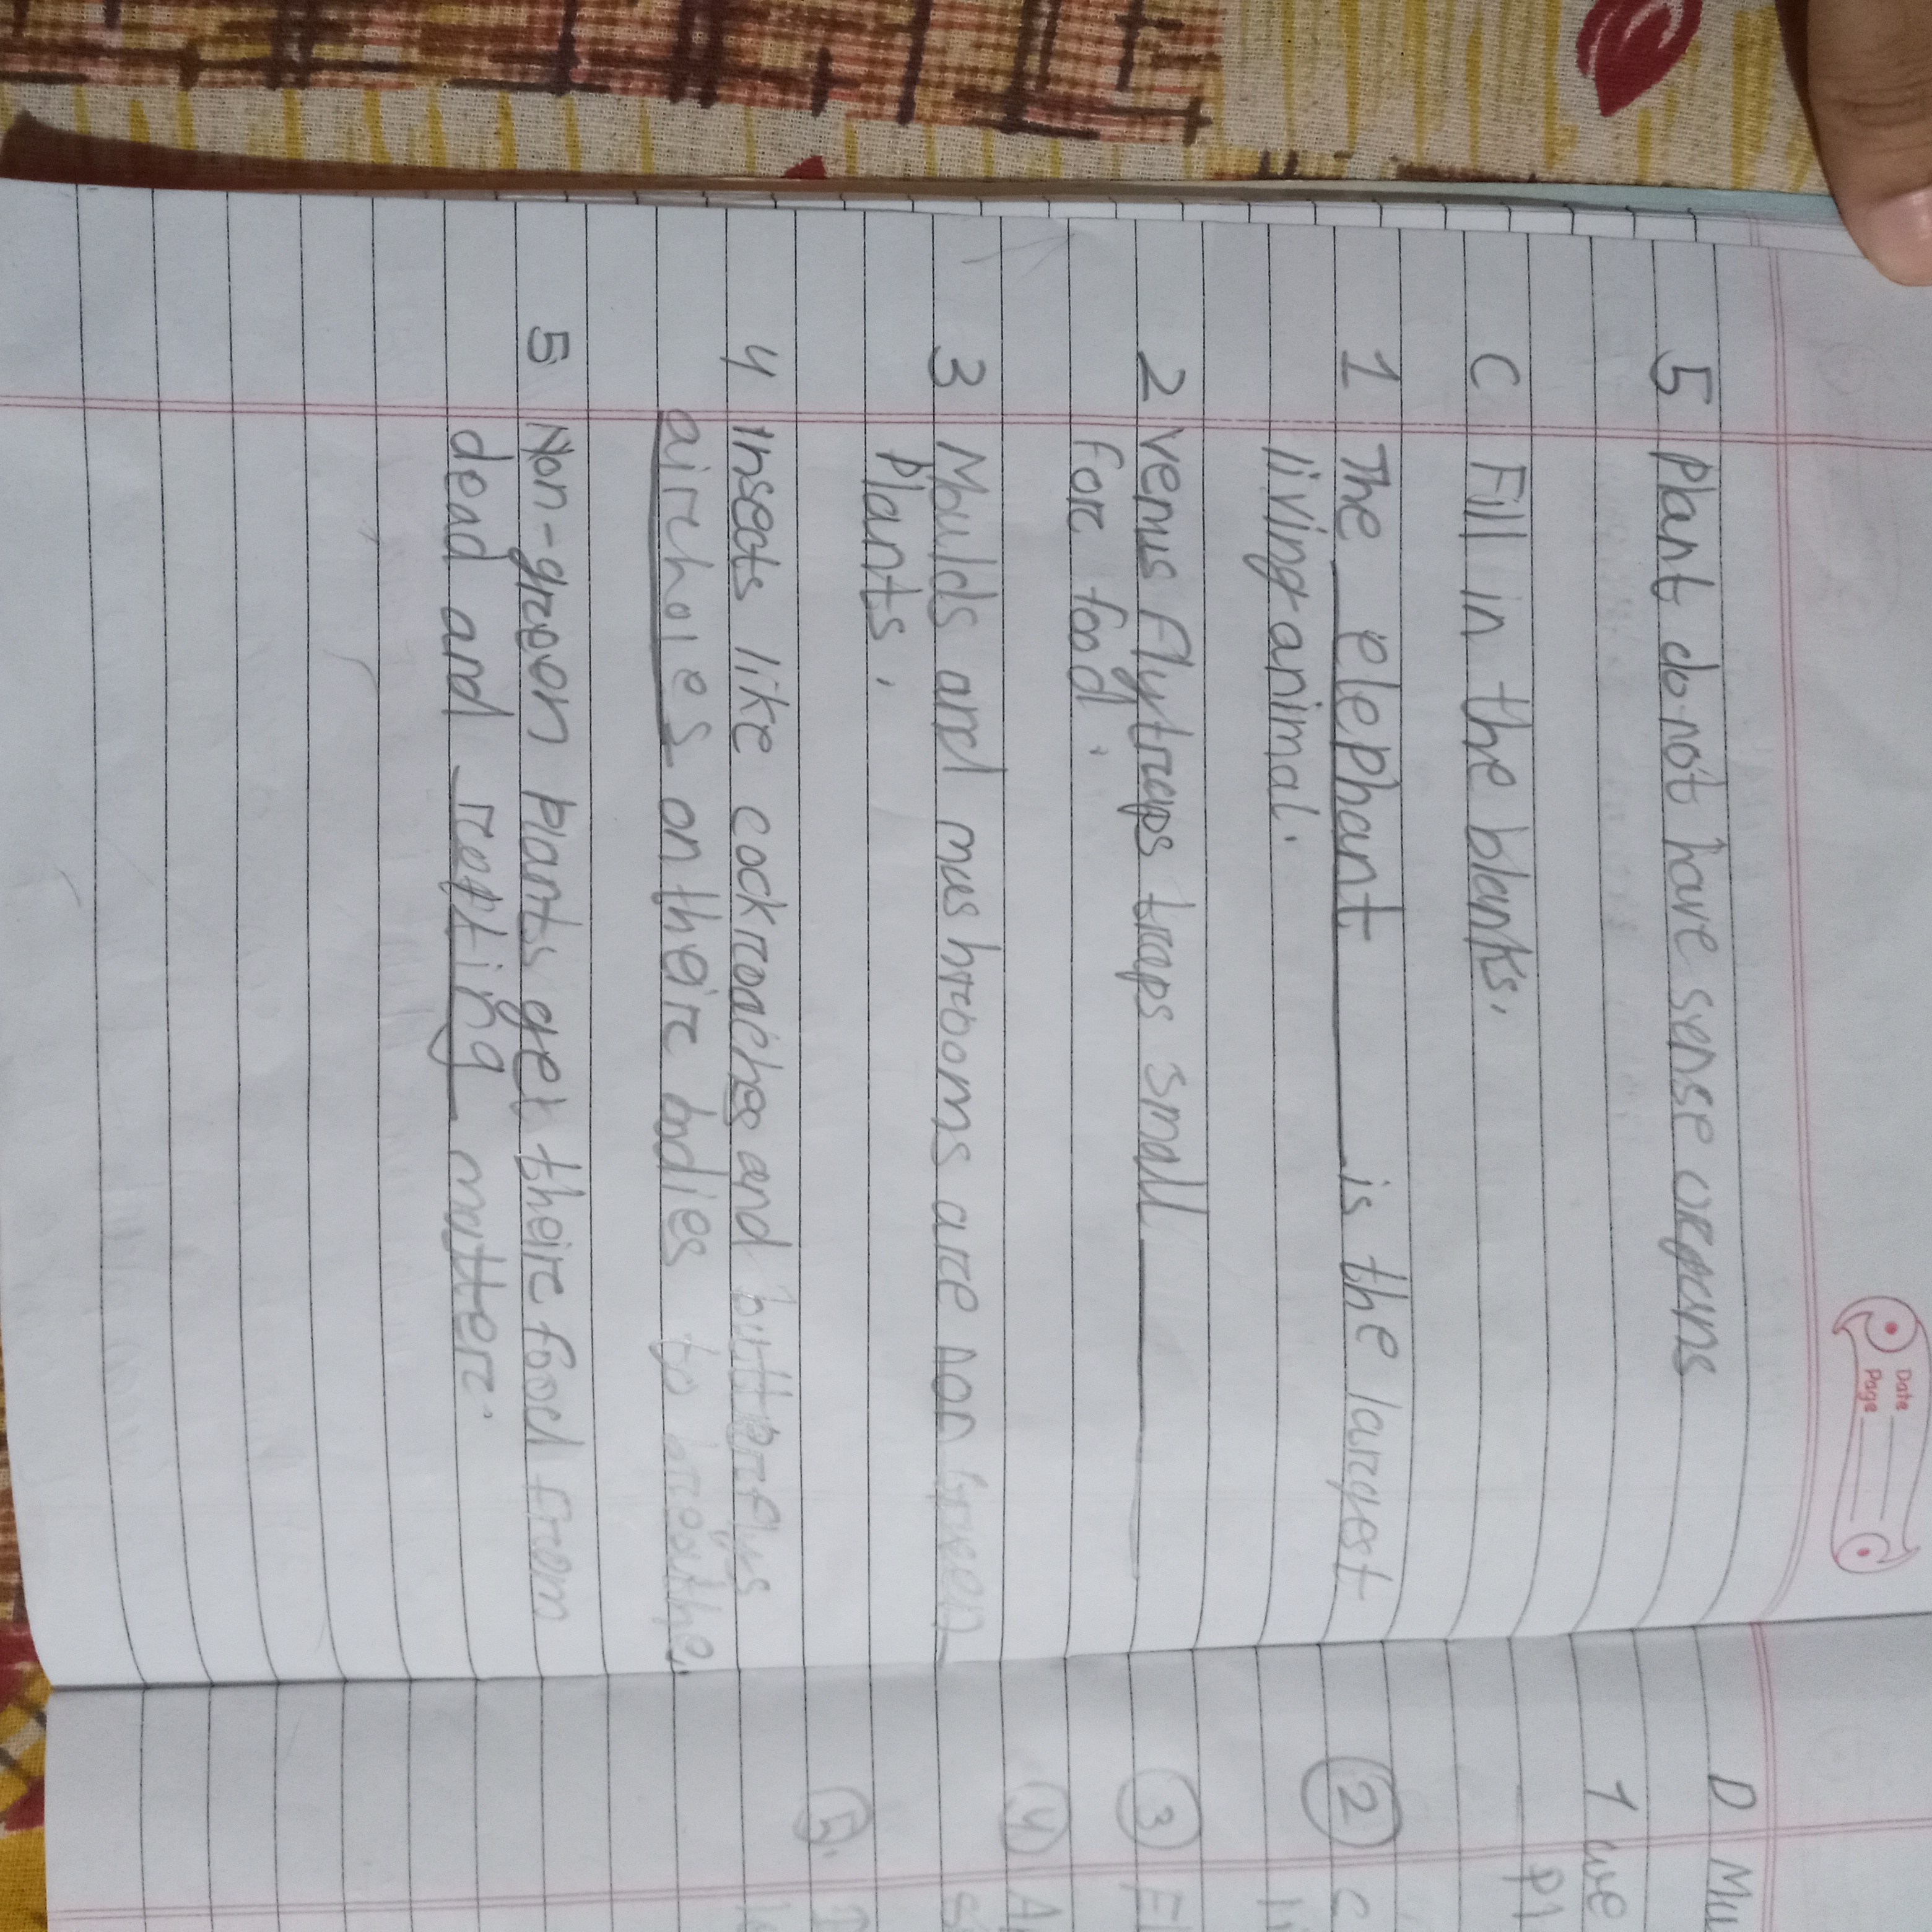 Date
Page
5 Plant do not have sense organs
C Fill in the blanks.
1 The elephant is the largest
living animal.
2 Venus flytraps traps small
for food.
3 Moulds and mushrooms are non green
Plants.
4 Insects like cockroaches and butterflys
airholes on their bodies to breathe.
5 Non-green plants get their food from
dead and rotting matter.
D Mu
1 we
Pl
2 C
li
3 Fl
4 A
5.